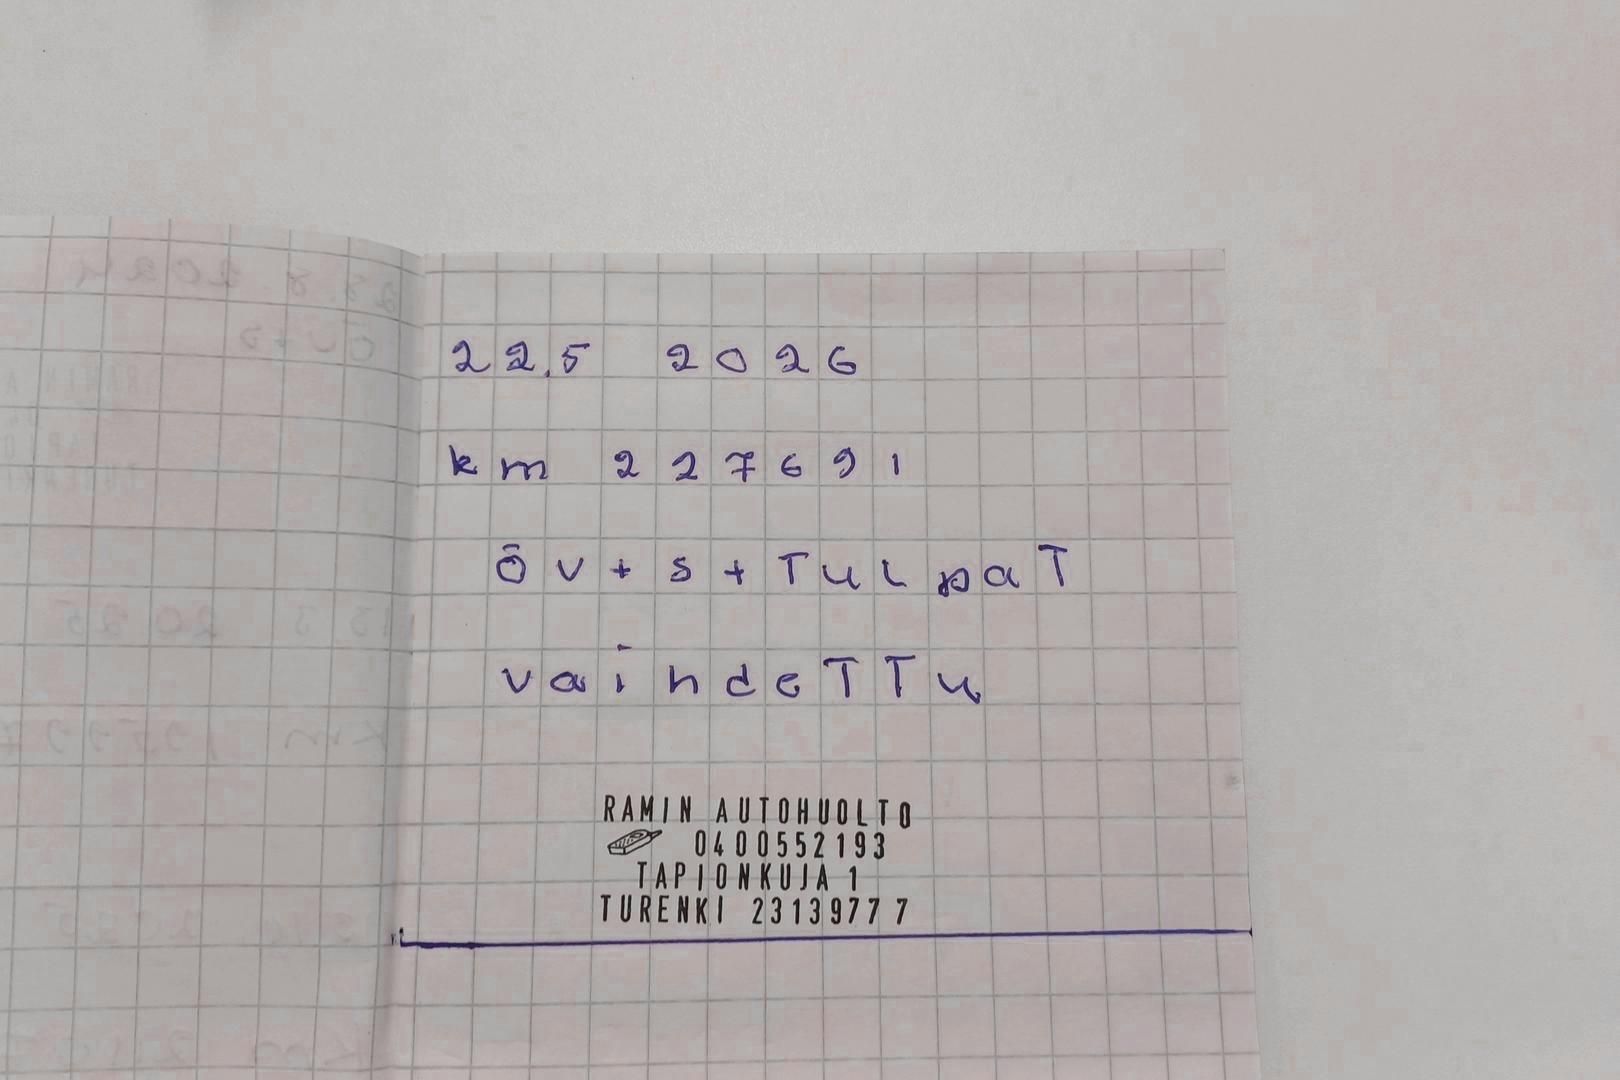 22.5 2026
km 227691
öv+s+TuLpaT
vaindeTTu
RAMIN AUTOHUOLTO
0400552193
TAPIONKUJA 1
TURENKI 23139777